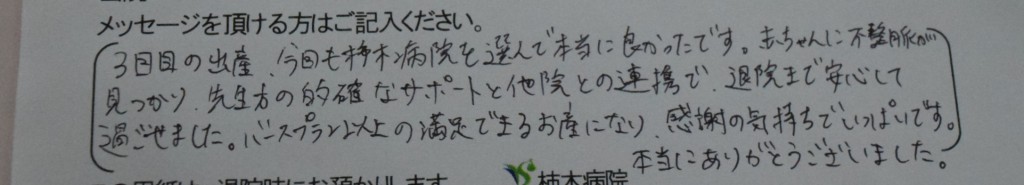 メッセージを頂ける方はご記入ください。
3回目の出産、今回も柿木病院を選んで本当に良かったです。赤ちゃんに不整脈が
見つかり、先生方の的確なサポートと他院との連携で、退院まで安心して
過ごせました。バースプラン以上の満足できるお産になり、感謝の気持ちでいっぱいです。
本当にありがとうございました。
退院時にお預かりします
柿木病院